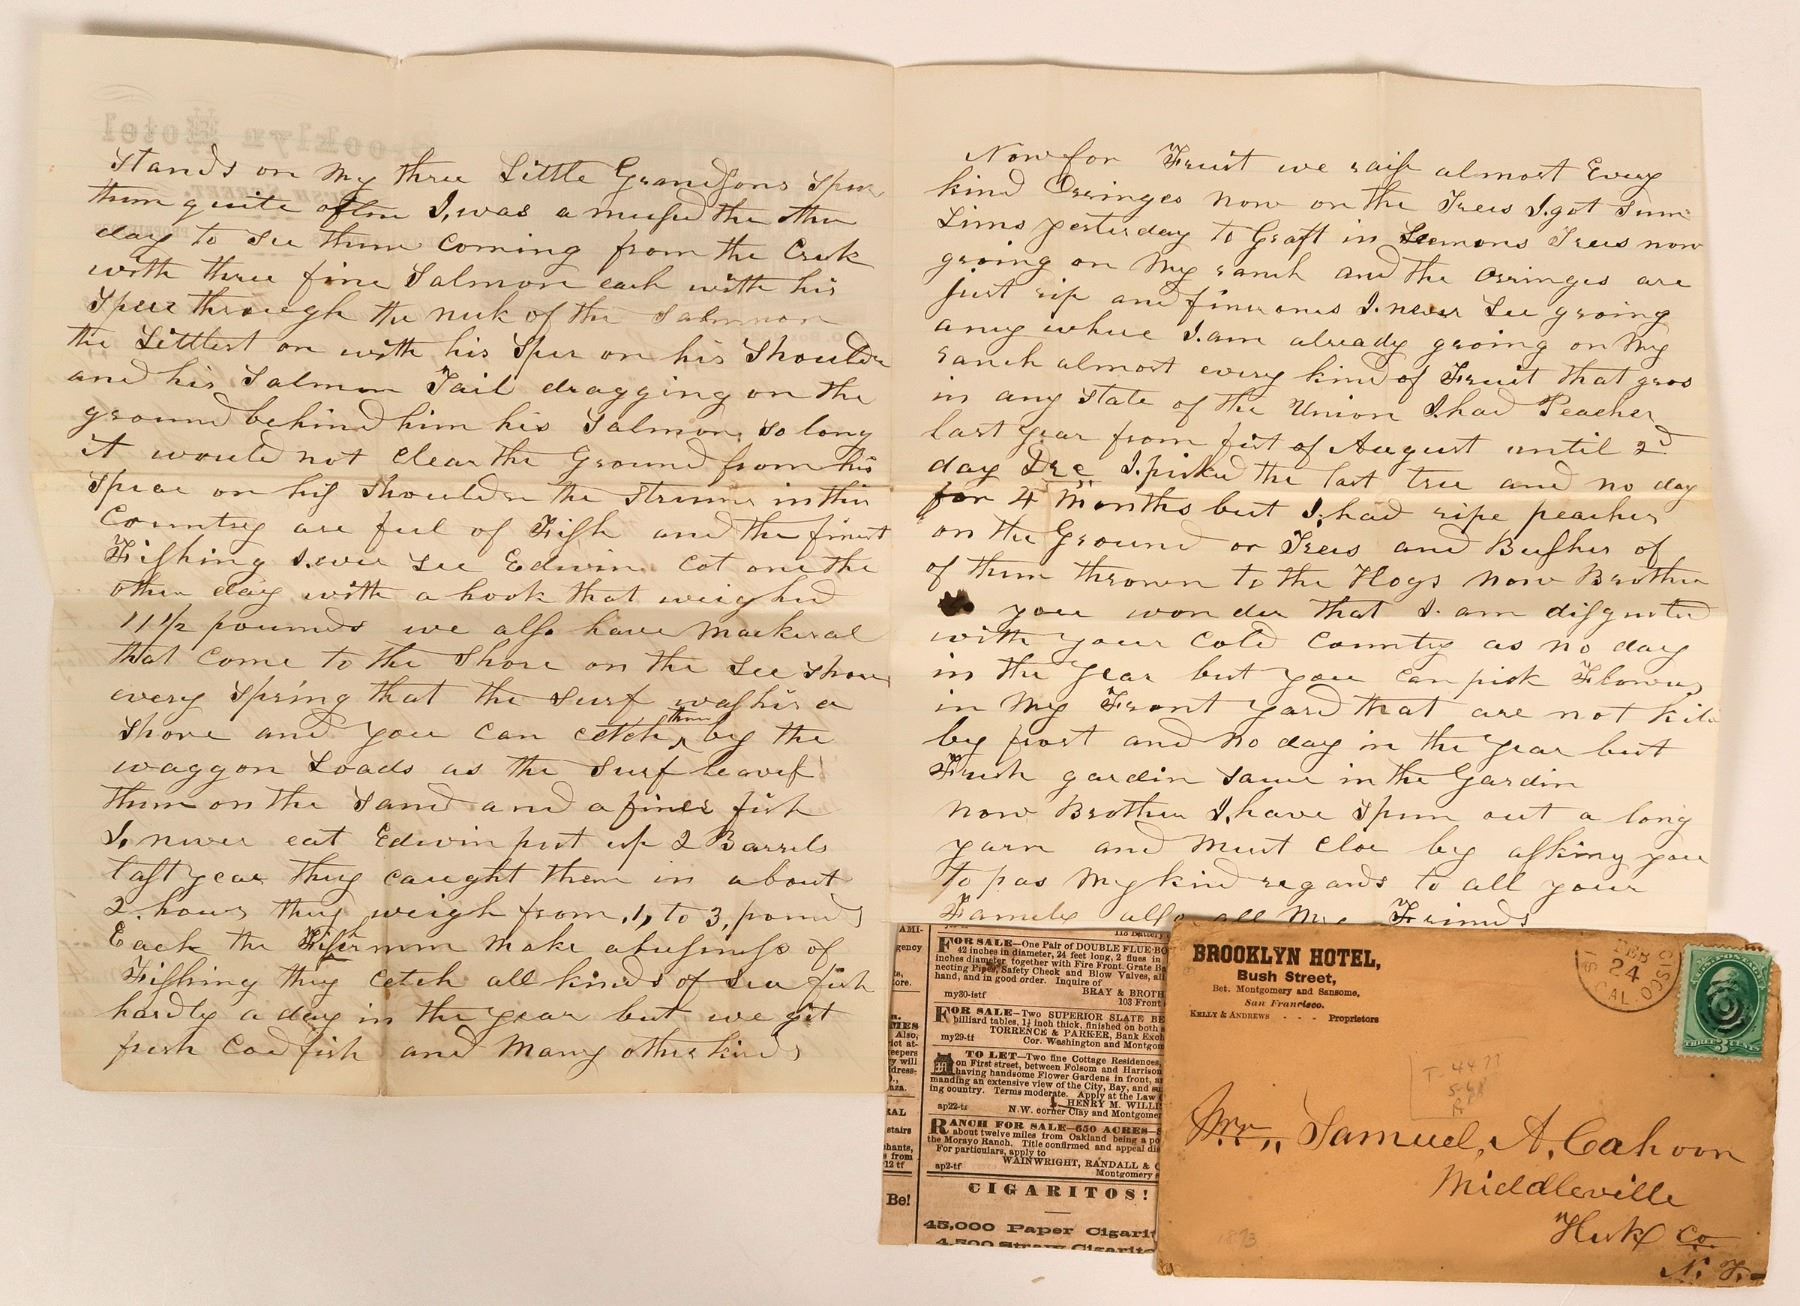 stands on my three Little Grandsons Spear
them quite often I, was amused the other
day to see them Coming from the Creek
with three fine Salmon each with his
Spear through the neck of the Salmon
the Littlest on with his Sper on his Shoulder
and his Salmon Tail dragging on the
ground behind him his Salmon so long
it would not clear the Ground from his
Spear on his Shoulder the Streams in this
Country are ful of Fish and the finest
Fishing I ever see Edwin Cot one the
other day with a hook that weighed
11 1/2 pounds we also have Mackeral
that Come to the Shore on the See Shore
every Spring that the Surf washes a
Shore and you Can cetch them by the
waggon Loads as the Surf leaves
them on the Sand and a finer fish
I, never eat Edwin put up 2 Barrels
last year they caught them in about
2 hours they weigh from, 1, to 3, pounds
Each the Fishermen make a business of
Fishing they Cetch all kinds of Sea fish
hardly a day in the year but we git
fresh Codfish and Many other kinds
Now for Fruit we rais almost Every
kind Orringes now on the Trees I got Sum
Lims yesterday to Graft in Lemons Trees now
groing on My ranch and the Orringes are
just rip and finer ones I never See groing
any where I am already groing on My
ranch almost every kind of Fruit that gros
in any State of the Union I had Peaches
last year from first of August until 2d
day Dec I picked the last tree and no day
for 4 Months but I, had ripe peaches
on the Ground or Trees and Bushes of
of them thrown to the Hogs Now Brother
you wonder that I am disgusted
with your Cold Country as no day
in the year but you Can pick Flowers
in My Front yard that are not kild
by frost and no day in the year but
Fresh gardin Sause in the Gardin
Now Brother I, have Spun out a long
yarn and Must Close by asking you
to pas My kind regards to all your
Family also all My Friends
AMI-
gency
FOR SALE—One Pair of DOUBLE FLUE BO
42 inches in diameter, 24 feet long, 2 flues in
inches diameter together with Fire Front. Grate Ba
necting Pipes, Safety Check and Blow Valves, all
hand, and in good order. Inquire of
BRAY & BROTH
my30-1stf 103 Front
FOR SALE—Two SUPERIOR SLATE BE
billiard tables, 1¼ inch thick, finished on both s
TORRENCE & PARKER, Bank Exch
my29-tf Cor. Washington and Montgom
TO LET—Two fine Cottage Residences,
on First street, between Folsom and Harrison
having handsome Flower Gardens in front, an
manding an extensive view of the City, Bay, and su
ing country. Terms moderate. Apply at the Law
HENRY M. WILLI
ap22-tf N.W. corner Clay and Montgome
RANCH FOR SALE—650 ACRES—S
about twelve miles from Oakland being a po
the Morayo Ranch. Title confirmed and appeal dis
For particulars, apply to
WAINWRIGHT, RANDALL & C
ap2-tf Montgomery s
CIGARITOS!
45,000 Paper Cigarit
4,500 Straw Cigarito
Be!
BROOKLYN HOTEL,
Bush Street,
Bet. Montgomery and Sansome,
San Francisco.
KELLY & ANDREWS - - - Proprietors
FEB
24
CAL.
THREE 3 CENTS
T-4477
Mr., Samuel, A, Cahoon
Middleville
Herk Co.
N. Y.
1873